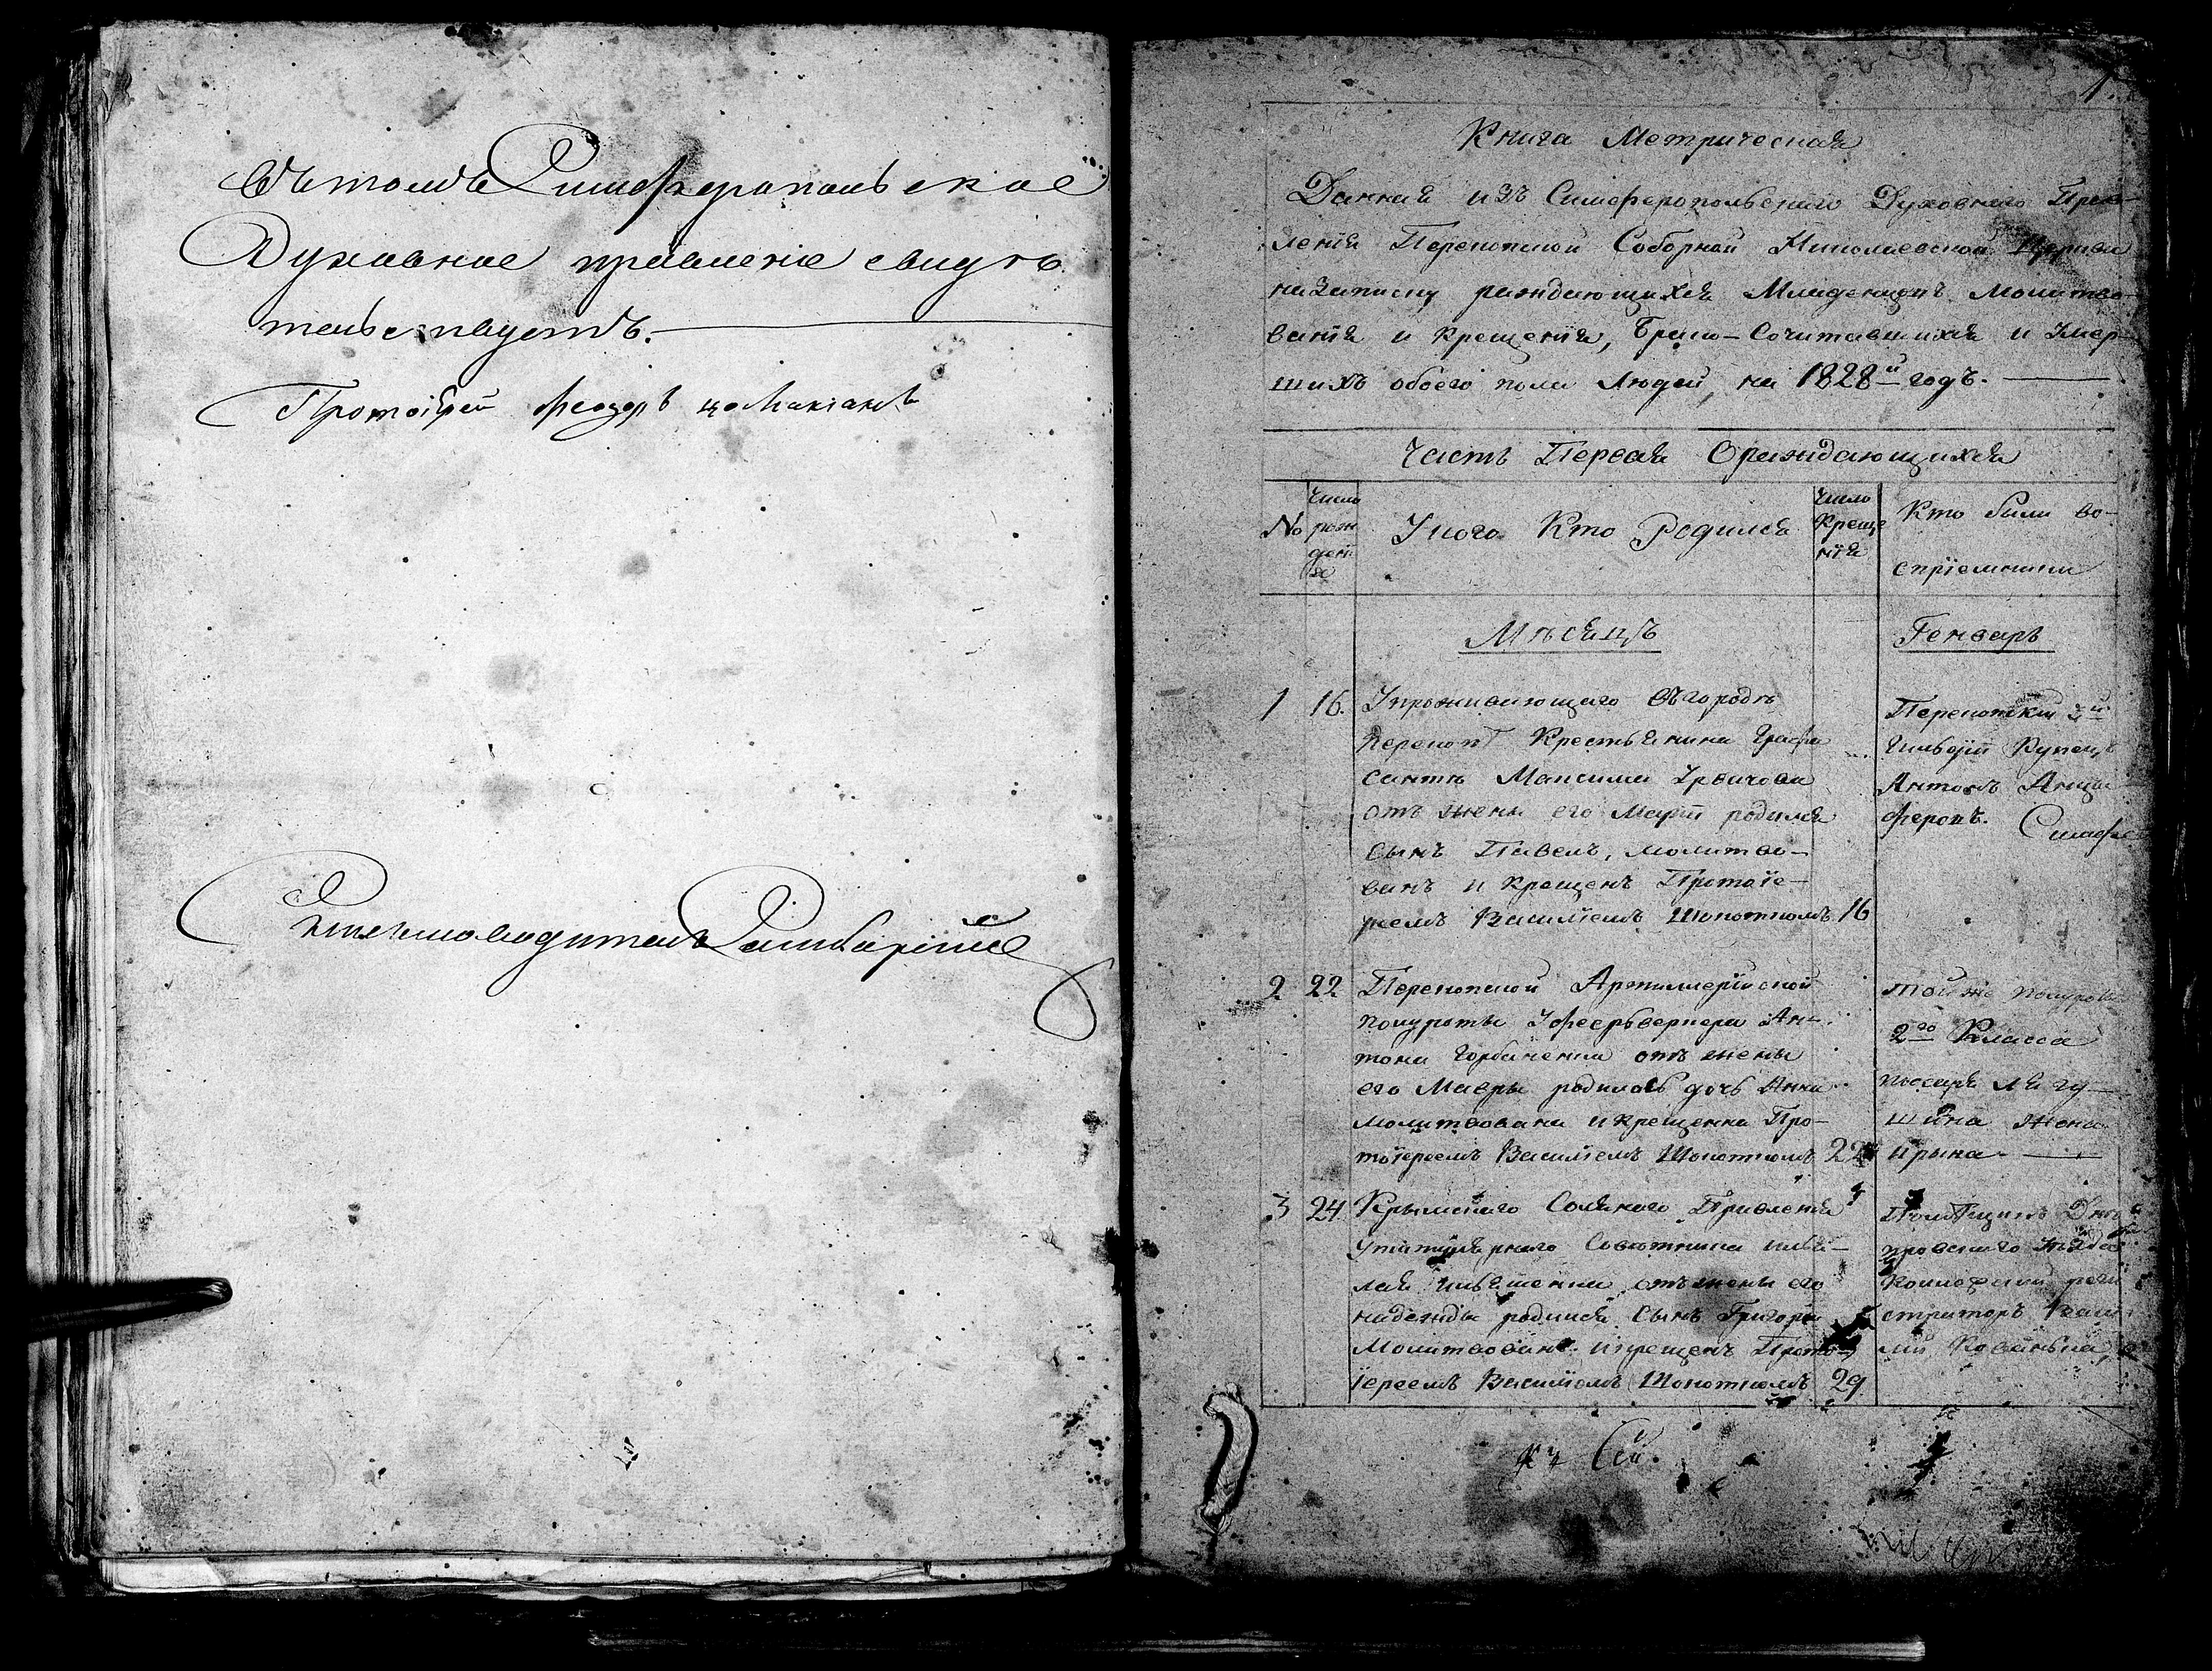 Въ томъ Симферопольское
Духовное правление свидѣ
тельствуетъ.
Протоіерей Феодоръ
Письмоводитель
1
Книга Метрическая
Данная изъ Симферопольскаго Духовнаго Прав-
ленія Перекопской Соборной Николаевской Церкви
на записку раждающихся Младенцовъ Молитво-
ванія и Крещенія, Брако-Сочитавшихся и Умер-
шихъ обоего пола Людей, на 1828й годъ.
Часть Первая О раждающихся
№
Число рож ден ія
У кого Кто Родился
Число Креще нія
Кто были во-
спріемники
Мѣсяцъ
Генварь
1 16. У проживающаго въ городѣ
Перекопѣ Крестьянина Графа
Максима
отъ жены его Марѳи родился
Сынъ Павелъ, молитво-
ванъ и крещенъ Протоіе-
реемъ Василіемъ 16
Перекопский 3й
Гильдіи Купецъ
Антонъ
2 22 Перекопской Артиллерійской
полуроты Уфеервернера Ан-
тона Горбаненка отъ жены
его Мавры родилась дочь Анна
молитвована и крещенна Про-
тоіереемъ Василіемъ 22
той же полуроты
2го Класса
писаря Лягу-
шина Жена
Ирына
3 24 Крымскаго Солянаго Правленія
у титулярнаго Совѣтника
отъ жены его
надежды родился Сынъ Григорій
Молитвованъ и крещенъ Прото-
іереемъ Василіемъ 29
Помѣщикъ Днѣ
провскаго уѣзда
Коллежскій реги
страторъ